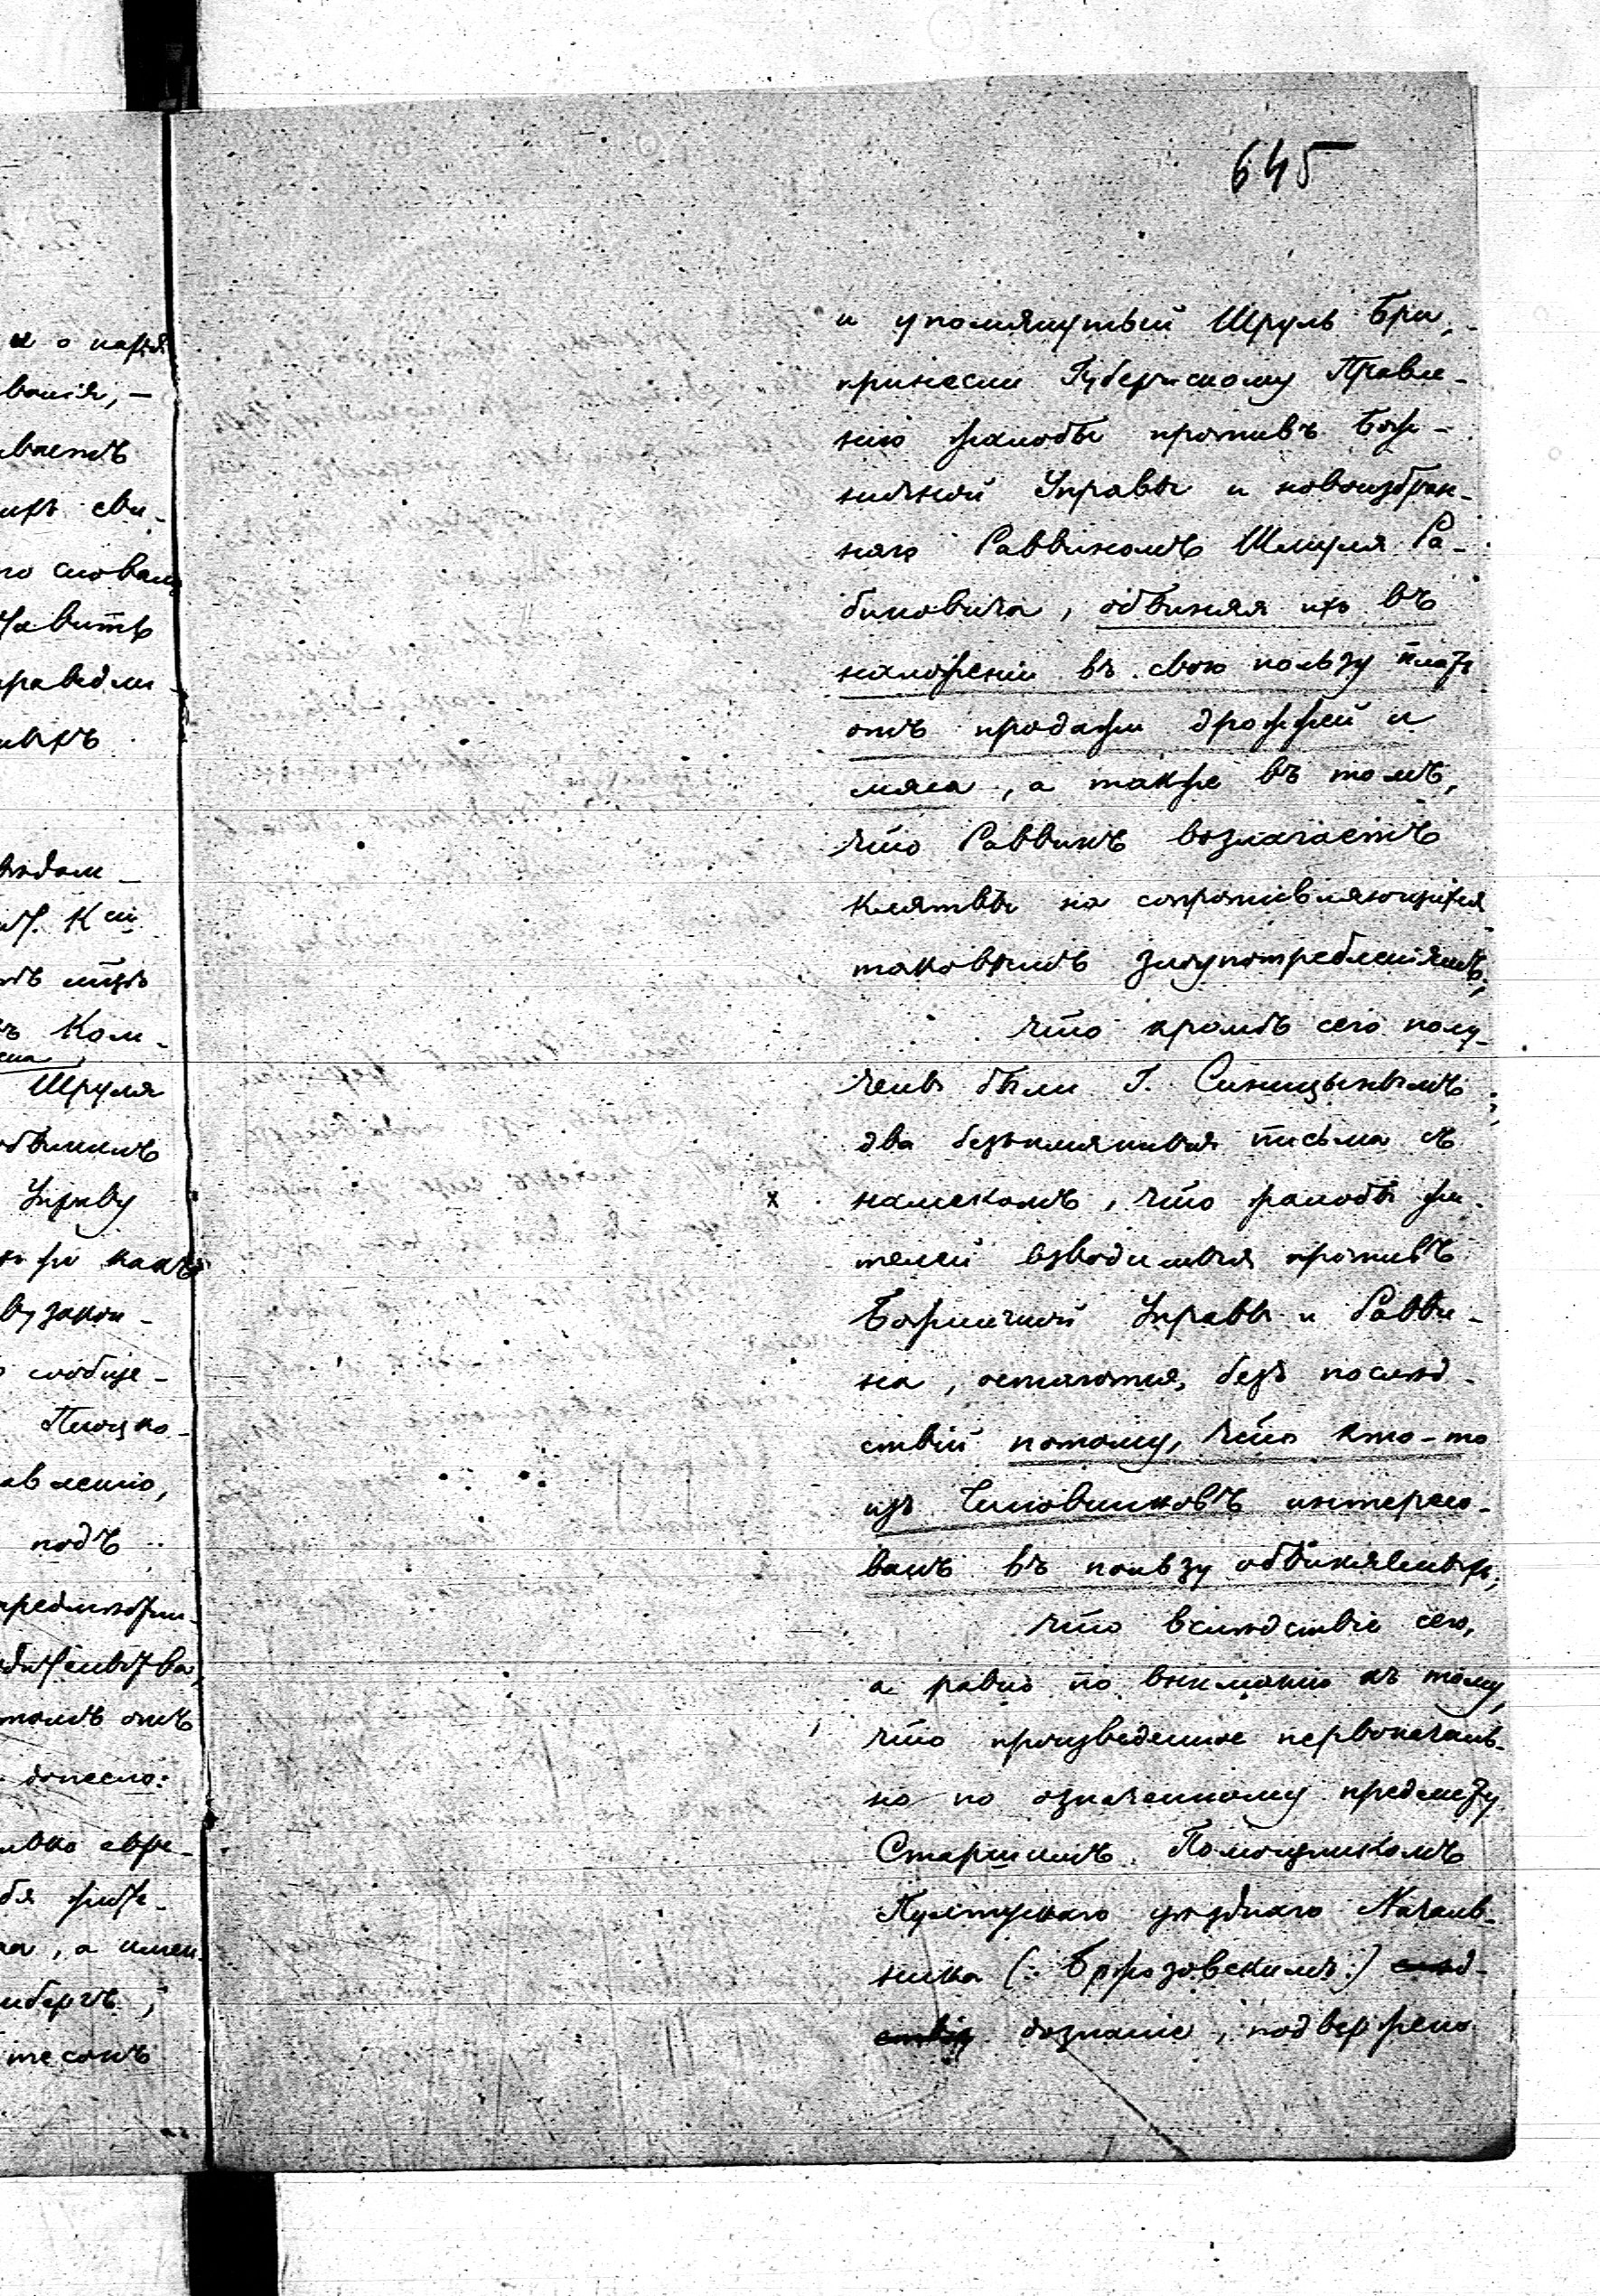 645
и упомянутый Шруль Бри,
принесли Губернскому Правле-
нію жалобы противъ Бож-
ничной Управы и новоизбран-
наго Раввиномъ Шмуля Ра-
биновича, обвиняя ихъ въ
наложеніи въ свою пользу платы
отъ продажи дрожжей и
мяса, а также въ томъ,
что Раввинъ возлагаетъ
клятвы на сопротивляющихся
таковымъ злоупотребленіямъ;
что кромѣ сего полу-
чены были Г. Синицынымъ
два безъимянныя письма съ
намекомъ, что жалобы жи-
телей взводимыя противъ
Божничной Управы и Равви-
на, остаются, безъ послѣд-
ствій потому, что кто-то
изъ Чиновниковъ интересо-
ванъ въ пользу обвиняемыхъ;
что вслѣдствіе сего,
а равно по вниманію къ тому,
что произведенное первоначаль-
но по означенному предмету
Старшимъ Помощникомъ
Пултускаго уѣзднаго Началь-
ника (: Бржозовскимъ :) слѣд-
ствія дознаніе, подвержено
и о
ванія, —
ваетъ
ихъ сви-
по словамъ
равит
праведли-
Ком-
Шруля
обвинилъ
Управу
же какъ
сообще-
Плоцко-
авленію,
подъ
томъ отъ
донесло:
, а имен-